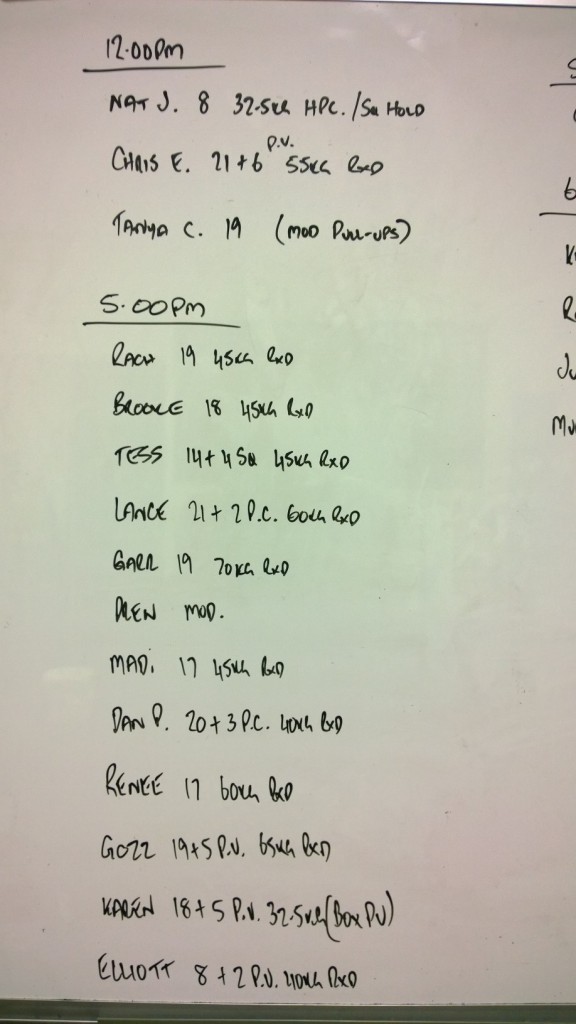 12.00PM
NAT J. 8 32.5KG HPC./SQ HOLD
CHRIS E. 21+6 P.U. 55KG RXD
TANYA C. 19 (MOD PULL-UPS)
5.00PM
RACH 19 45KG RXD
BROOKE 18 45KG RXD
TESS 14+4 SQ 45KG RXD
LANCE 21+2 P.C. 60KG RXD
GARR 19 70KG RXD
DREN MOD.
MADI 17 45KG RXD
DAN P. 20+3 P.C. 40KG RXD
RENEE 17 60KG RXD
GOZZ 19+5 P.U. 65KG RXD
KAREN 18+5 P.U. 32.5KG (BOX PU)
ELLIOTT 8+2 P.U. 40KG RXD